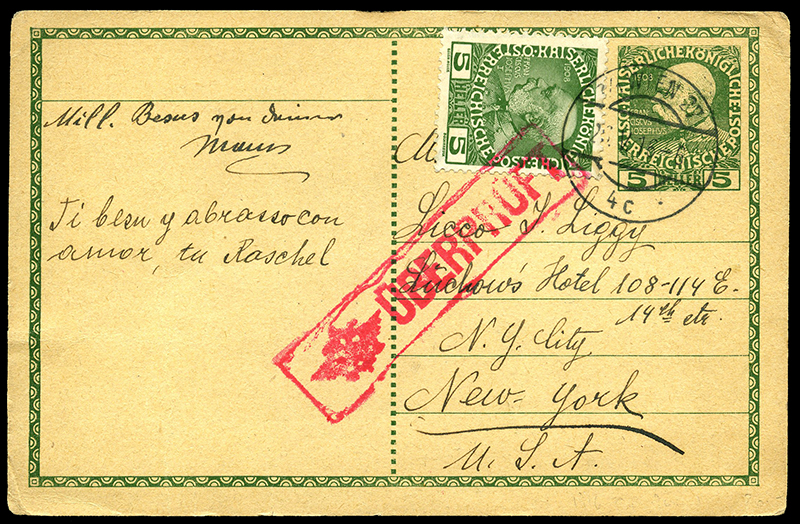 Mill. Besus von deinem
Mann
Ti besu y abrasso con
amor, tu Raschel
5 HELLER 5
KAISERLICHE KÖNIGLICHE ÖSTERREICHISCHE POST
KAISERLICHE KÖNIGLICHE ÖSTERREICHISCHE POST
1908
5 HELLER 5
WIEN
4c
ÜBERPRÜFT
Licco J. Liggy
Lüchow's Hotel 108-114 E.
14th str.
N. Y. City
New-York
U. S. A.